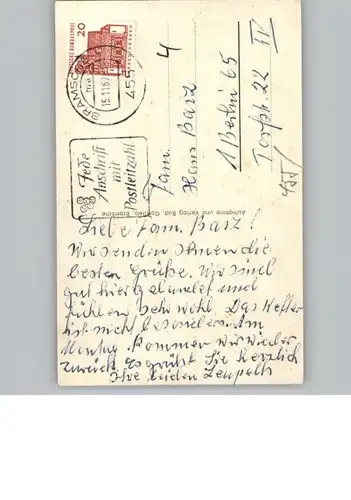 20
DEUTSCHE BUNDESPOST
BRAMSCHE
15.11.67
455
Jede
Anschrift
mit
Postleitzahl
4
Fam.
Hans Barz
1 Berlin 65
Torfstr. 22 IV
Aufnahme und Verlag Rud.
Liebe Fam. Barz!
Wir senden Ihnen die
besten Grüße. Wir sind
gut hier gelandet und
fühlen sehr wohl. Das Wetter
ist nich besonders. Am
Montag kommen wir wieder
zurück. Es grüßt Sie herzlich
Ihre beiden Leupolts